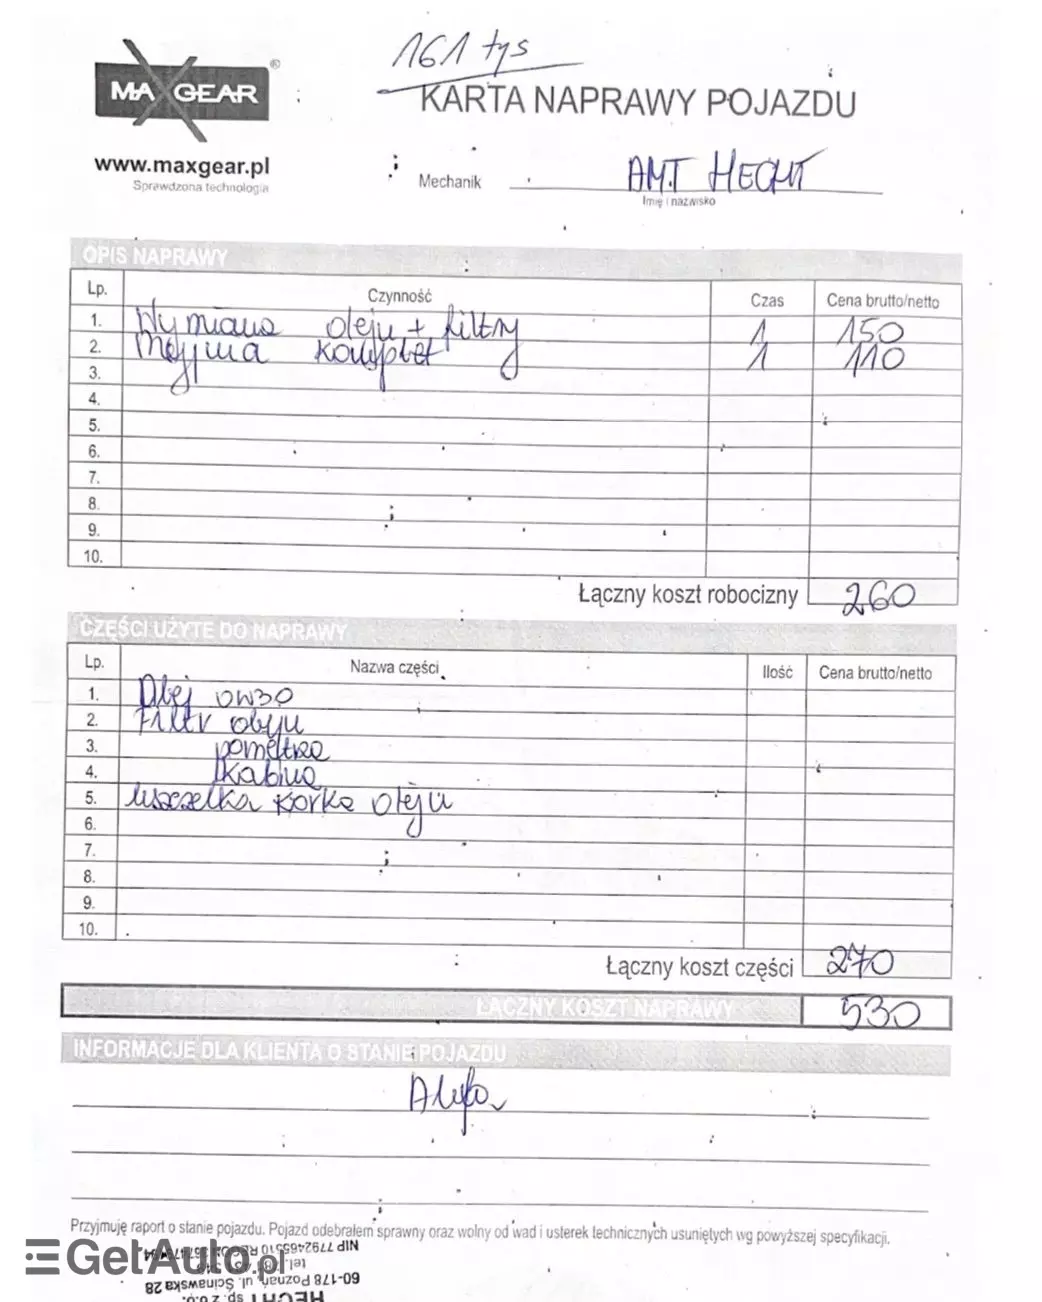 161 tys
MAXGEAR ®
KARTA NAPRAWY POJAZDU
www.maxgear.pl
Sprawdzona technologia
Mechanik AMT HECHT
Imię i nazwisko
OPIS NAPRAWY
Lp. Czynność Czas Cena brutto/netto
1. Wymiana oleju + filtry 1 150
2. Myjnia komplet 1 110
3.
4.
5.
6.
7.
8.
9.
10.
Łączny koszt robocizny 260
CZĘŚCI UŻYTE DO NAPRAWY
Lp. Nazwa części Ilość Cena brutto/netto
1. Olej 0W30
2. Filtr oleju
3. pometrza
4. Kabina
5. uszczelka korka oleju
6.
7.
8.
9.
10.
Łączny koszt części 270
ŁĄCZNY KOSZT NAPRAWY 530
INFORMACJE DLA KLIENTA O STANIE POJAZDU
Alfa
Przyjmuję raport o stanie pojazdu. Pojazd odebrałem sprawny oraz wolny od wad i usterek technicznych usuniętych wg powyższej specyfikacji.
GetAuto.pl
60-178 Poznań, ul. Ścinawska 28
HECHT sp. z o.o.